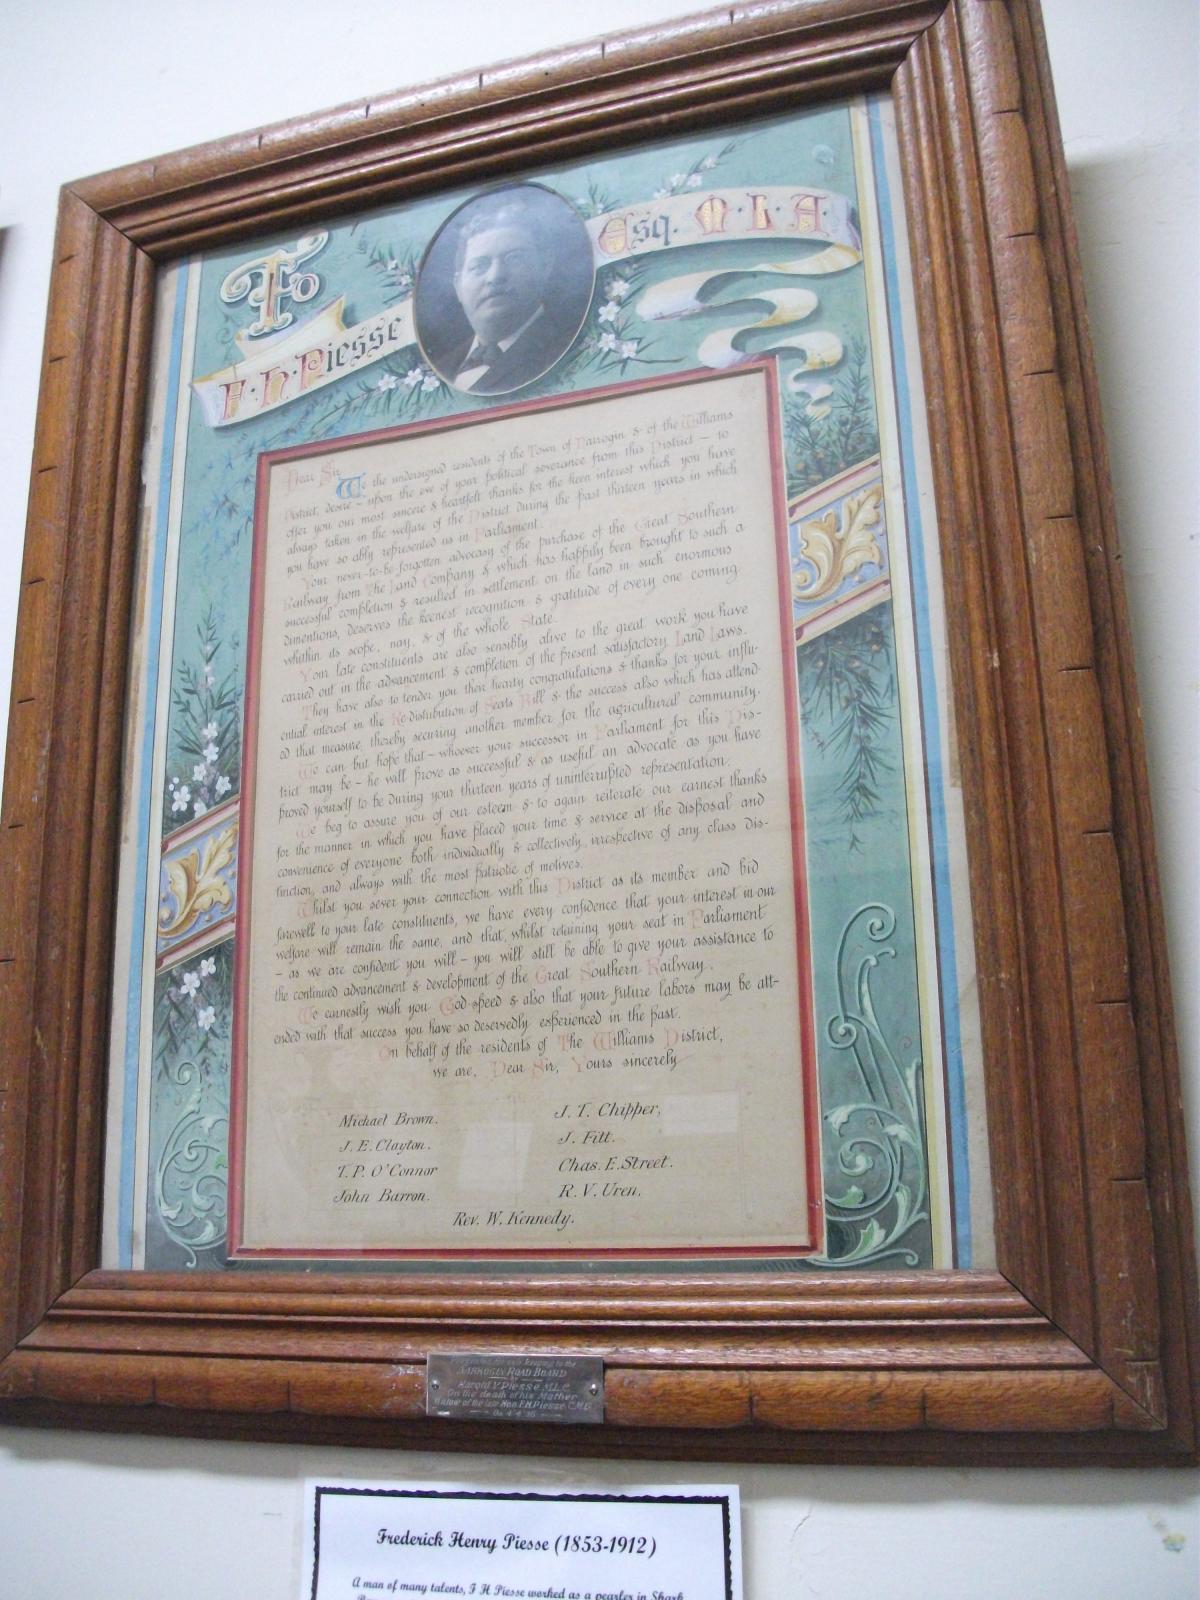 To
F. H. Piesse
Esq. M. L. A.
Dear Sir
We the undersigned residents of the Town of Narrogin & of the Williams
District, desire – upon the eve of your political severance from this District – to
offer you our most sincere & heartfelt thanks for the keen interest which you have
always taken in the welfare of the District during the past thirteen years in which
you have so ably represented us in Parliament.
Your never-to-be forgotten advocasy of the purchase of the Great Southern
Railway from The Land Company & which has happily been brought to such a
successful completion & resulted in settlement on the land in such enormous
dimentions, deserves the keenest recognition & gratitude of every one coming
whithin its scope, nay, & of the whole State.
Your late constituents are also sensibly alive to the great work you have
carried out in the advancement & completion of the present satisfactory Land Laws.
They have also to tender you their hearty congratulations & thanks for your influ-
ential interest in the Re-distribution of Seats Bill & the success also which has attend-
ed that measure, thereby securing another member for the agricultural community.
We can but hope that – whoever your successor in Parliament for this Dis-
trict may be – he will prove as successful & as useful an advocate as you have
proved yourself to be during your thirteen years of uninterrupted representation.
We beg to assure you of our esteem & to again reiterate our earnest thanks
for the manner in which you have placed your time & service at the disposal and
convenience of everyone both individually & collectively, irrespective of any class dis-
tinction, and always with the most patriotic of motives.
Whilst you sever your connection with this District as its member and bid
farewell to your late constituents, we have every confidence that your interest in our
welfare will remain the same, and that, whilst retaining your seat in Parliament
– as we are confident you will – you will still be able to give your assistance to
the continued advancement & development of the Great Southern Railway.
We earnestly wish you God-speed & also that your future labors may be att-
ended with that success you have so deservedly experienced in the past.
On behalf of the residents of The Williams District,
we are, Dear Sir, Yours sincerely
Michael Brown.
J. E. Clayton.
T. P. O'Connor
John Barron.
J. T. Chipper,
J. Fitt.
Chas. E. Street.
R. V. Uren.
Rev. W. Kennedy.
Presented for safe keeping to the
NARROGIN ROAD BOARD
by
Harold V Piesse M.L.C.
On the death of his Mother
Widow of the late Hon. F.H. Piesse C.M.G
On 4·4·36
Frederick Henry Piesse (1853-1912)
A man of many talents, F H Piesse worked as a pearler in Shark